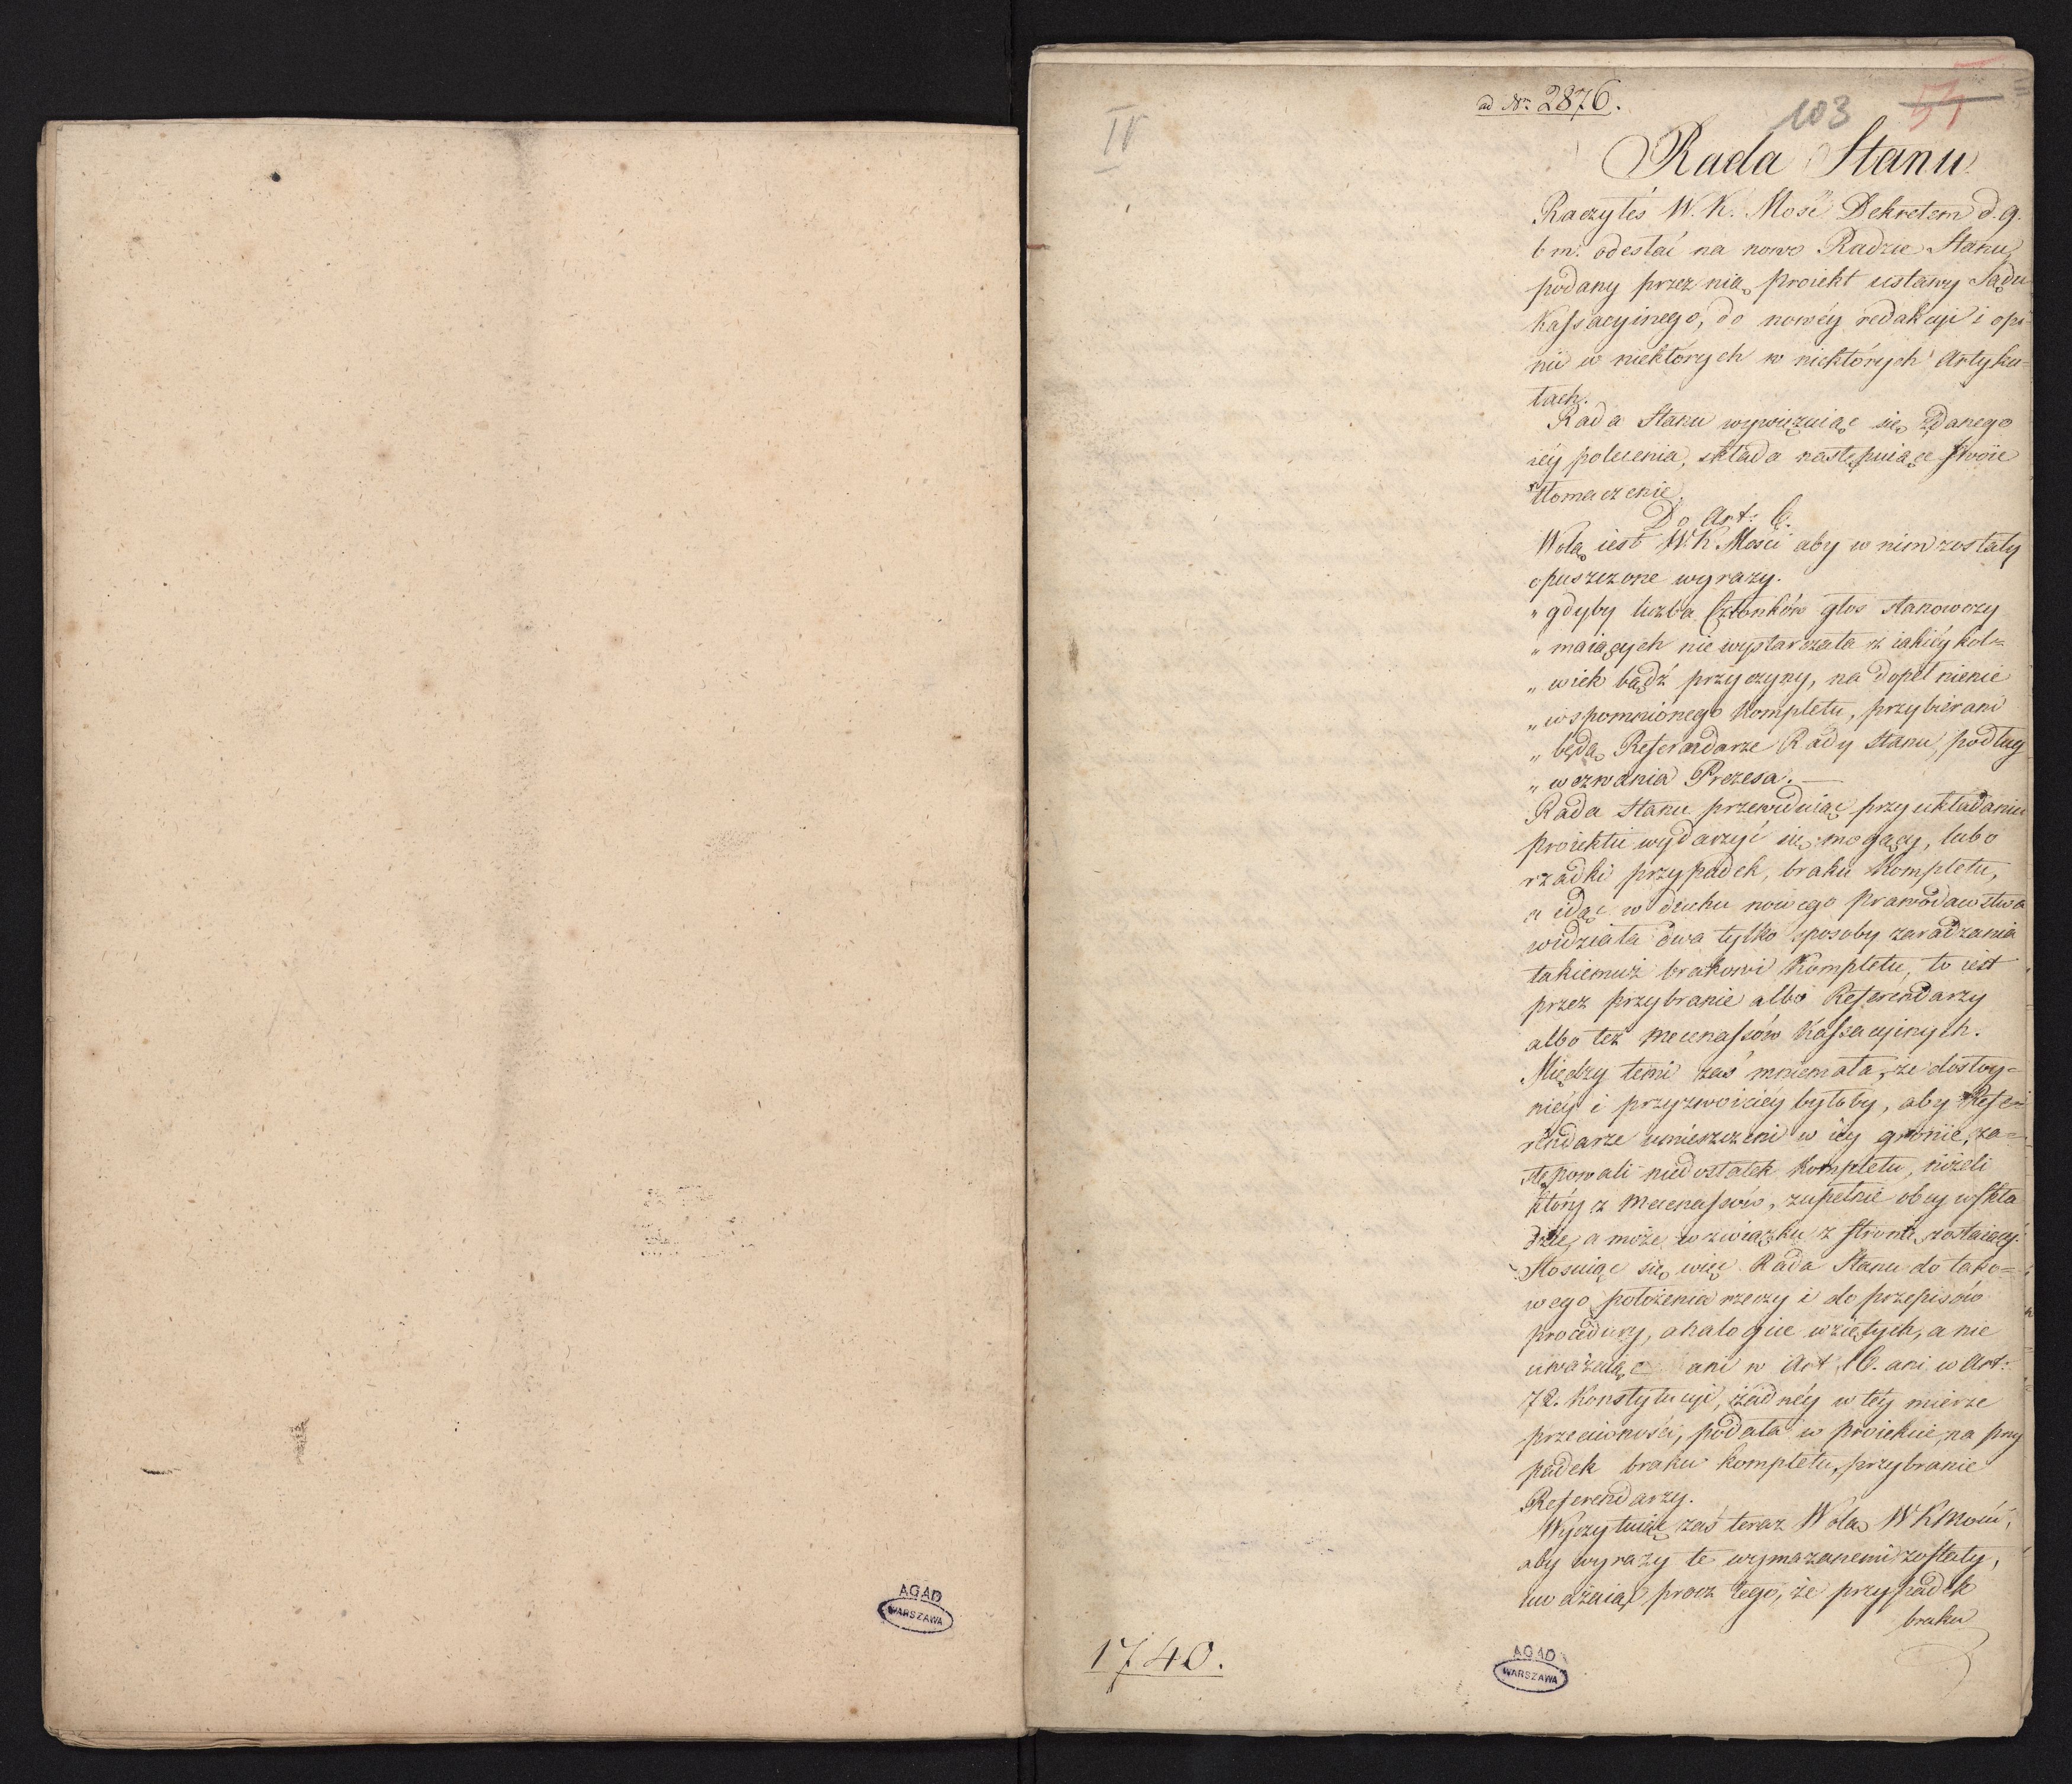 ad Nr. 2876.
IV
103
Rada Stanu
Raczyłeś W. K. Mość Dekretem d. 9.
b m. odesłać na nowo Radzie Stanu,
podany przez nią proiekt ustawy Sądu
Kassacyinego, do nowéy redakcyi i opi-
nii w niektórych w niektórych Artyku=
łach.
Rada Stanu wywięzuiąc się z danego
iéy polecenia, składa następuiące swoie
tłomaczenie.
Do Art: 6.
Wolą iest W. K. Mości aby w nim zostały
opuszczone wyrazy.
„ gdyby liczba Członków głos stanowczy
„ maiących nie wystarczała z iakiéykol=
„ wiek bądź przyczyny, na dopełnienie
„ wspomnionego kompletu, przybierani
„ będą Referendarze Rady Stanu, podług
„ wezwania Prezesa. —
Rada Stanu przewiduiąc przy układaniu
proiektu wydarzyć się mogący, lubo
rzadki przypadek, braku kompletu,
a idąc w duchu nowego prawodawstwa
widziała dwa tylko sposoby zaradzania
takiemuż brakowi kompletu, to iest
przez przybranie albo Referendarzy
albo też Mecenassów Kassacyinych.
Między temi zaś mniemała, że dostoy=
niéy i przyzwoiciéy byłoby, aby Refe=
rendarze umieszczeni w iéy gronie, za=
stępowali niedostatek kompletu, niżeli
który z Mecenassów, zupełnie obcy w skła
dzie, a może w związku z stroną zostaiący.
Stosuiąc się więc Rada Stanu do tako=
wego położenia rzeczy i do przepisów
procedury, analogice wziętych, a nie
uważaiąc ani w Art 16. ani w Art:
72. Konstytucyi, żadnéy w téy mierze
przeciwności, podała w proiekcie, na przy
padek braku kompletu, przybranie
Referendarzy.
Wyczytuiąc zaś teraz Wolą W K Mości,
aby wyrazy te wymazanemi zostały,
uważaiąc prócz tego, że przypadek
braku
1740.
AGAD
WARSZAWA
AGAD
WARSZAWA